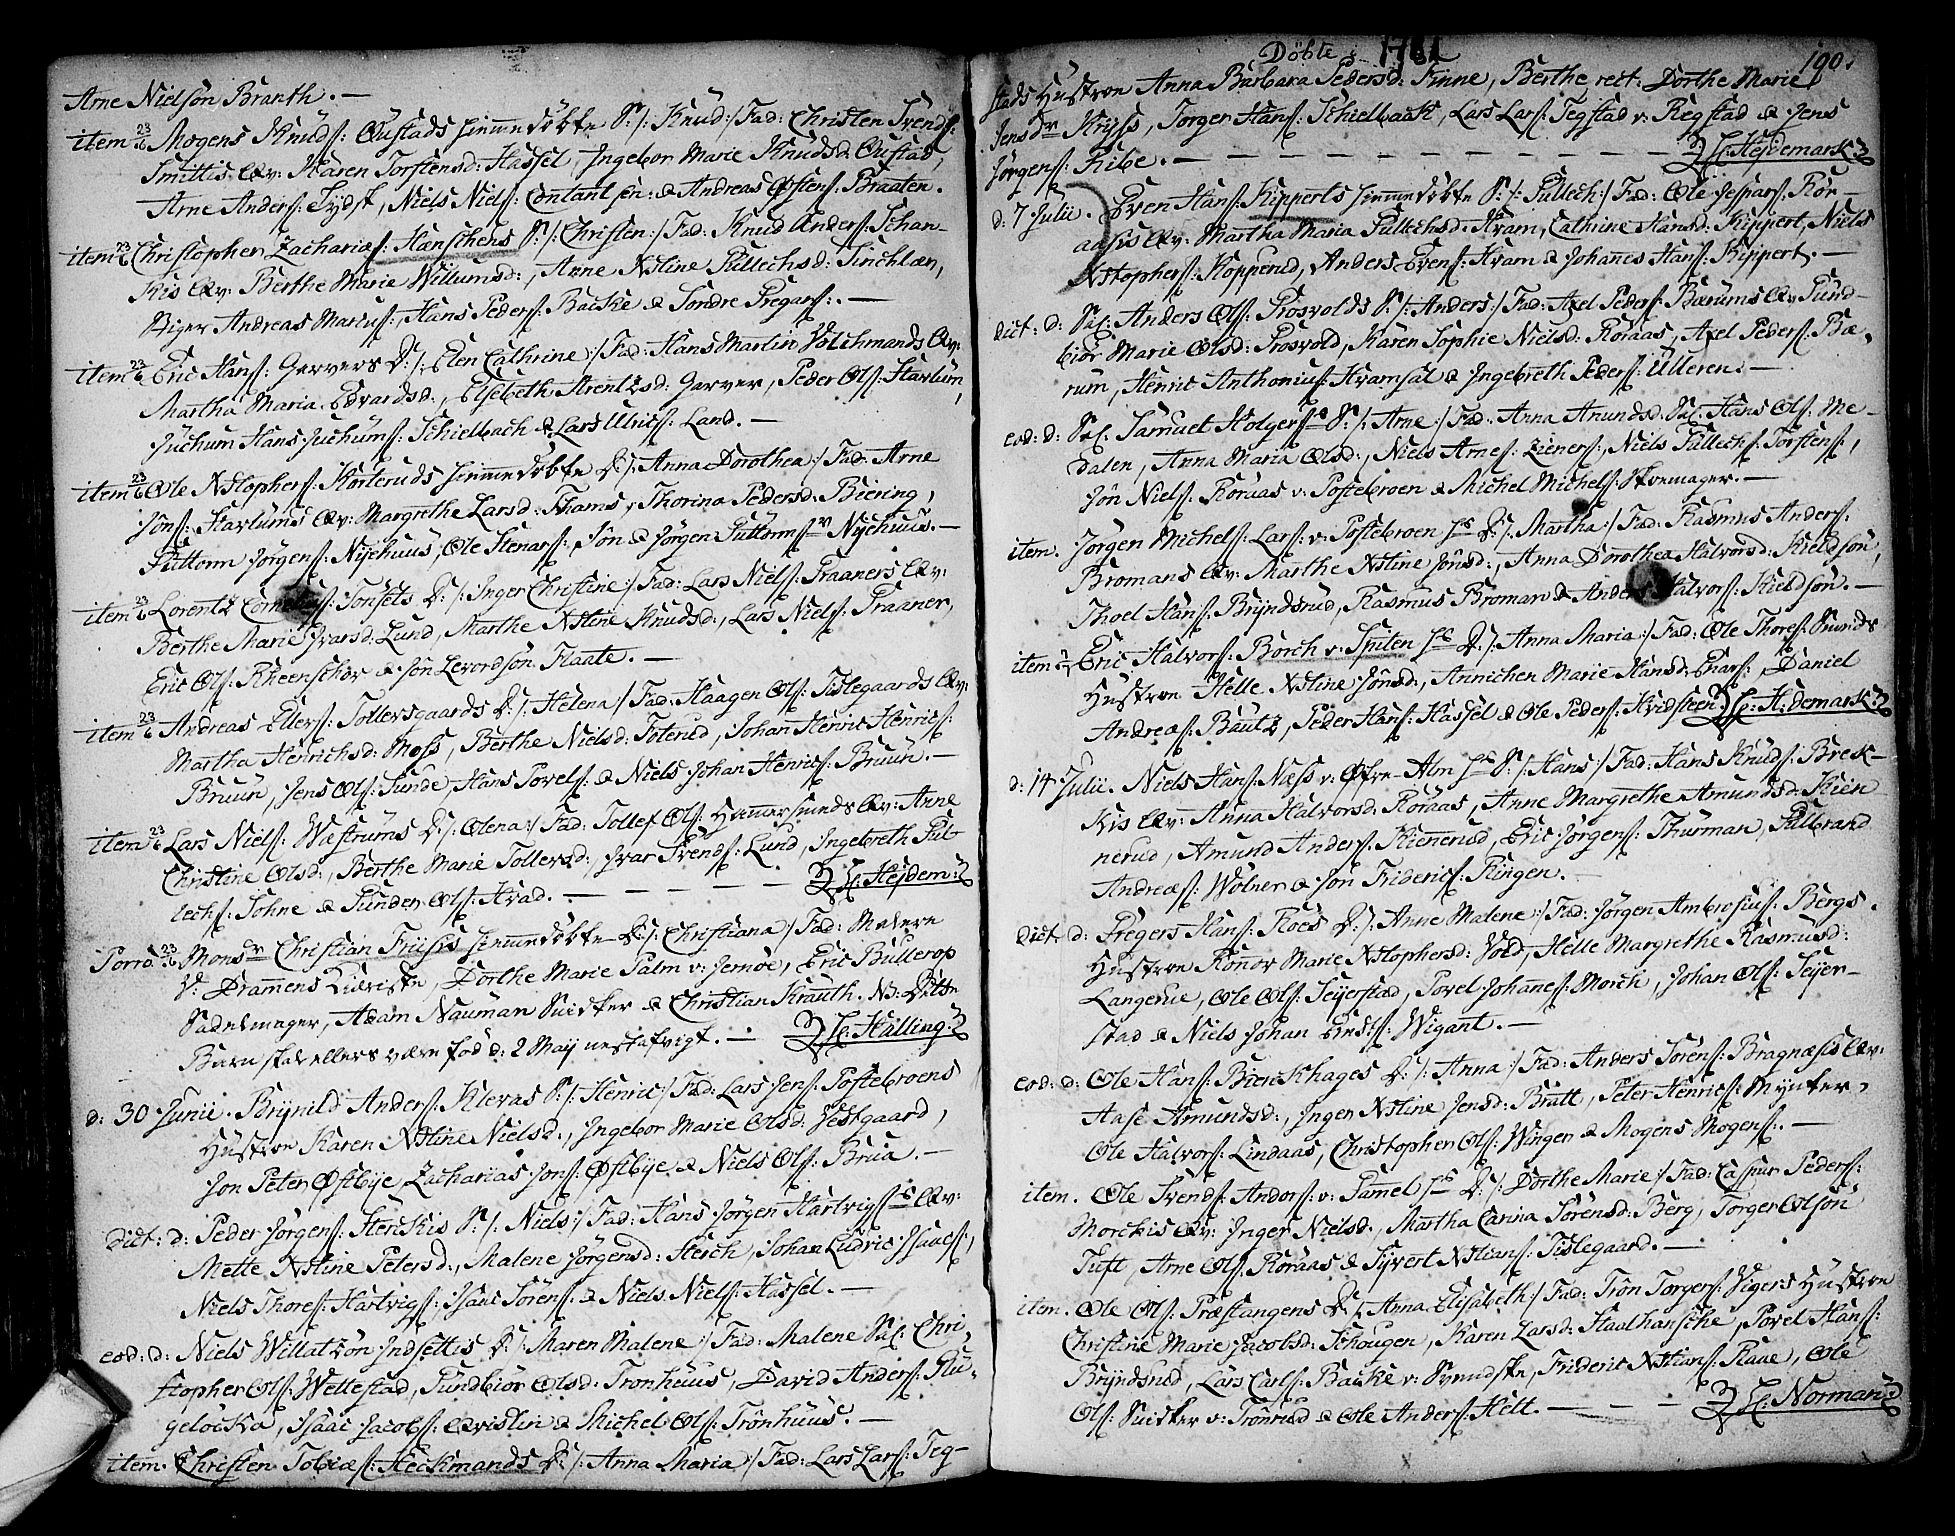 Arne Nielsøn Branth. —
item 23/6 Mogens Knuds: Gustads hiemmedøbte S: /: Knud :/ Fad: Christen Svends:
Smittis Qv: Karen Torstensd: Hassel, Ingebor Marie Knudsd: Gustad,
Arne Anders: Sydsk, Niels Niels: Contant Sen: & Andreas Østens: Braaten.
item 23/6 Christopher Zachariæs: Hænschens S: /: Christen :/ Fad: Knud Anders: Schan-
kis Qv: Berthe Marie Willumsd:, Anne Xstine Gullechsd:
Biger Andreas Marius:, Hans Peders: Backe & Tondre Gregars: —
item 23/6 Eric Hans: Garvers D: /: Elen Cathrine :/ Fad: Hans Martin Volchmands Qv:
Martha Maria Edvardsd:, Elsebeth Arentzsd: Garver, Peder Ols: Harlum,
Juchum Hans Juchums: Schielbach & Lars Ulrics: Land. —
item 23/6 Ole Xstophers: Korteruds hiemmedøbte D: /: Anna Dorothea :/ Fad: Arne
Jøns: Harlums Qv: Margrethe Larsd: Thams, Thorina Pedersd: Beining,
Guttorm Jørgens: Nyehuus, Ole Stenars: Jøn & Jørgen Guttorms: Nyehuus. —
item 23/6 Lorentz Cornelius: Tonsets D: /: Inger Christine :/ Fad: Lars Niels: Graaners Qv:
Berthe Marie Ivarsd: Lund, Marthe Xstine Knudsd:, Lars Niels: Graaner,
Eric Ols: & Jøn Levordsøn Flaate. —
item 23/6 Andreas Ellers: Tollersgaards D: /: Helena :/ Fad: Haagen Ols: Gislegaards Qv:
Martha Henrichsd: Moss, Berthe Nielsd: Toterud, Johan Henric Henrics:
Bruun, Jens Ols: Sunde, Hans Povels: & Niels Johan Henrics: Bruun. —
item 23/6 Lars Niels: Wæstrums D: /: Olena :/ Fad: Tollef Ols: Hamersunds Qv: Anne
Christine Olsd:, Berthe Marie Tollersd:, Ivar Svends: Lund, Ingebreth Gul-
lechs: Sohne & Gunder Ols: Hvad. — — — — — H: Hejdem:
Porro 23/6 Monsr Christian Friisis hiemmedøbte D: /: Christiana :/ Fad: Malene
V: Drammens Dorthe Marie Palm v: Jernøe, Eric Bullerop
Sadelmager, Adam Nauman Snidker & Christian Krauth. NB: Dette
Barn skal ellers være fød d: 2 Maij nestafvigt. — H: Halling
d: 30 Junii. Brynild Anders: Kleras S: /: Henric :/ Fad: Lars Jens: Gostebroens
Hustroe Karen Xstine Nielsd:, Ingebor Marie Olsd: Vestgaard,
Jon Peter Østbye, Zacharias Jons: Østbye & Niels Ols: Brua. —
Dict: d: Peder Jørgens: Herchis S: /: Niels :/ Fad: Hans Jørgen Hartvigs: Qv:
Mette Xstine Petersd:, Malene Jørgensd: Hesch, Johan Ludvic Isaacs:,
Niels Thores: Hartvigs: Isaac Sørens: & Niels Niels: Hassel. —
eod: d: Niels Willatzøn Indsettis D: /: Maren Malene :/ Fad: Malene Sal: Chri-
stopher Ols: Wettestad, Gundbiør Olsd: Tronhuus, David Anders: Glu-
geløcka, Isaac Jacobs: Qvistlin & Michel Ols: Trønhuus. —
item. Christen Tobiæs: Heckmands D: /: Anna Maria :/ Fad: Lars Lars: Teg-
Døbte 1781 190.
stads Hustroe Anna Barbara Pedersd: Finne, Berthe rect: Dorthe Marie
Jensdr Kryss, Torger Hans: Schielbach, Lars Lars: Tegstad v: Regstad & Jens
Jørgens: Kibe. — — — — — — — — H: Hejdemark
d: 7 Julii. Even Hans: Kipperts hiemmedøbte S: /: Gullech :/ Fad: Ole Jespars: Rør-
aasis Qv: Martha Maria Gullechsd: Kram, Cathrine Hansd: Kippert, Niels
Xstophers: Kopperud, Anders Evens: Kram & Johannes Hans: Kippert. —
Dict: d: Sal: Anders Ols: Grosvolds S: /: Anders :/ Fad: Axel Peders: Bærums Qv: Gund-
biør Marie Olsd: Grosvold, Karen Sophie Nielsd: Røraas, Axel Peders: Bæ-
rum, Henric Anthonius: Kramsal & Ingebreth Peders: Ulleren. —
eod: d: Sal: Samuel Holgers: S: /: Arne :/ Fad: Anna Amundsd: Sal: Hans Ols: Me-
dalen, Anna Maria Olsd:, Niels Arnes: Zieners:, Niels Gullechs: Torstens:,
Jøn Niels: Røraas v: Gostebroen & Michel Michels: Skomager. —
item. Jørgen Michels: Lars: v: Gostebroen D: /: Martha :/ Fad: Rasmus Anders:
Bromans Qv: Marthe Xstine Jønsd:, Anna Dorothea Halvorsd: Kieldsøn,
Thoel Hans: Bryndsrud, Rasmus Broman & Anders Halvors: Kieldsøn. —
item Eric Halvors: Borch v: Spiten D: /: Anna Maria :/ Fad: Ole Thores: Sunds
Hustroe Helle Xstine Jønsd:, Annichen Marie Hansd: Daniel
Andreæs: Bautz, Peder Hans: Hassel & Ole Peders: Hvidsteen H: Hejdemark
d: 14 Julii. Niels Hans: Næss v: Øfre-Alm S: /: Hans :/ Fad: Hans Knuds: Brek-
kis Qv: Anna Halvorsd: Røraas, Anne Margrethe Amundsd: Kien-
nerud, Amund Anders: Kiennerud, Eric Jørgens: Thurman, Gulbrand
Andreæs: Wolner & Jon Friderics: Ringen. —
Dict: d: Gregers Hans: Roes D: /: Anne Malene :/ Fad: Jørgen Ambrosius: Bergs
Hustroe Ronnov Marie Xstophersd: Vold, Helle Margrethe Rasmusd:
Langerue, Ole Ols: Sejerstad, Povel Johannes: Morch, Johan Ols: Sejer-
stad & Niels Johan Ernsts: Wigant. —
eod: d: Ole Hans: Bienkhages D: /: Anna :/ Fad: Anders Sørens: Bragnæsis Qv:
Aase Amundsd:, Inger Xstine Jensd: Bratt, Peter Henrics: Mynter,
Ole Halvors: Lindaas, Christopher Ols: Winger & Mogens Mogens: —
item. Ole Svends: Andors: v: Gamel D: /: Dorthe Marie :/ Fad: Casspar Peders:
Morckis Qv: Inger Nielsd:, Martha Carina Sørensd: Berg, Torger Olsøn
Tuft, Arne Ols: Røraas & Syvert Xstians: Gislegaard. —
item. Ole Ols: Præstangens D: /: Anna Elisabeth :/ Fad: Trøn Torgers: Vigers Hustroe
Christine Marie Jacobsd: Schougen, Karen Larsd: Haalhansche, Povel Hans:
Bryndsrud, Lars Carls: Backe v: Svendske, Frideric Xstians: Raae, Ole
Ols: Snidker v: Trønrud & Ole Anders: Helt. — — — H: Norman